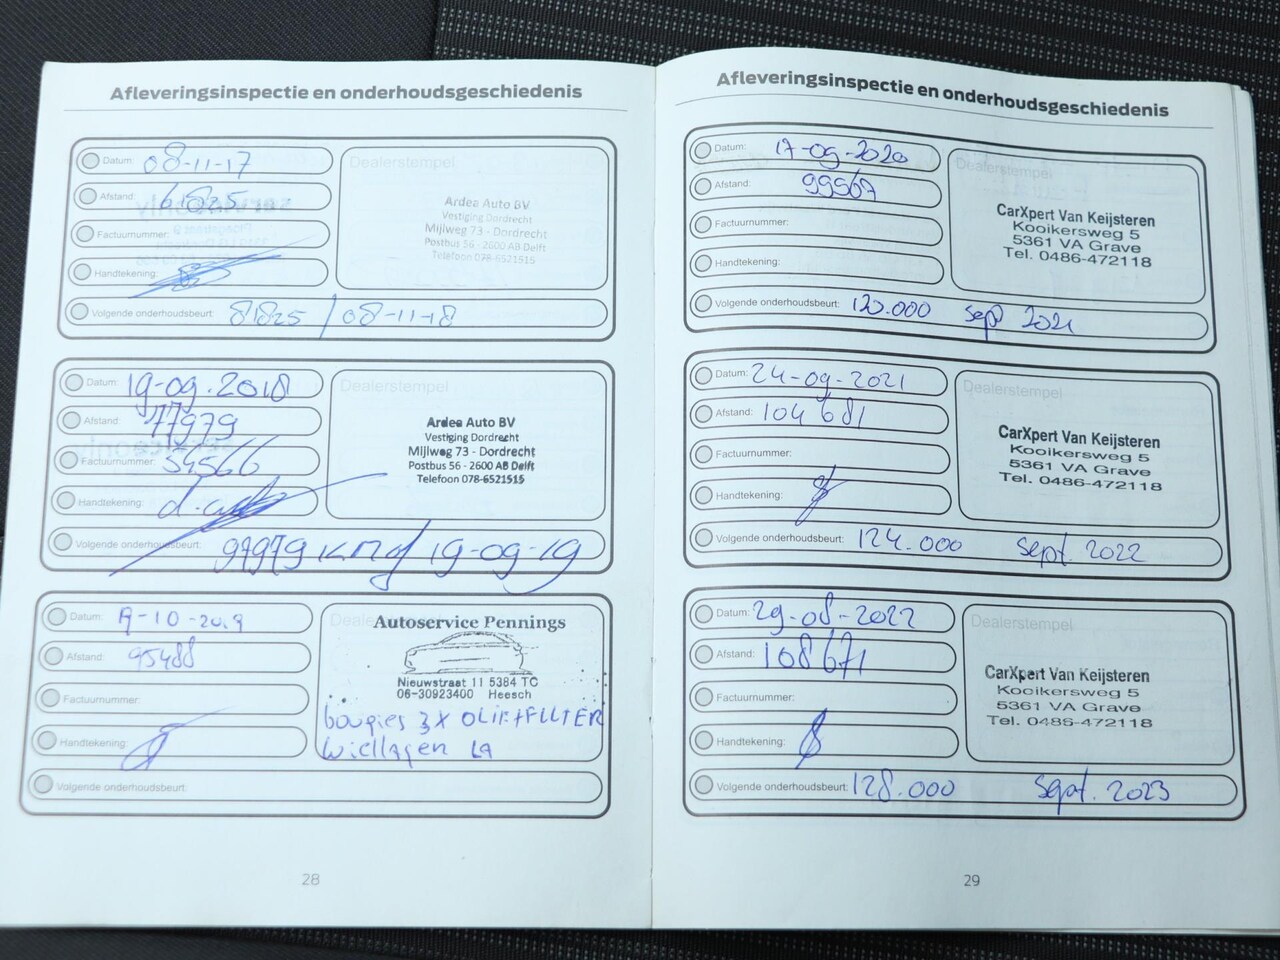 Afleveringsinspectie en onderhoudsgeschiedenis
Datum: 08-11-17
Afstand: 61825
Factuurnummer:
Handtekening:
Volgende onderhoudsbeurt: 81825 / 08-11-18
Dealerstempel
Ardea Auto BV
Vestiging Dordrecht
Mijlweg 73 - Dordrecht
Postbus 56 - 2600 AB Delft
Telefoon 078-6521515
Datum: 19-09-2018
Afstand: 77979
Factuurnummer: 54566
Handtekening:
Volgende onderhoudsbeurt: 97979 km / 19-09-19
Dealerstempel
Ardea Auto BV
Vestiging Dordrecht
Mijlweg 73 - Dordrecht
Postbus 56 - 2600 AB Delft
Telefoon 078-6521515
Datum: -10-2019
Afstand: 95488
Factuurnummer:
Handtekening:
Volgende onderhoudsbeurt:
Autoservice Pennings
Nieuwstraat 11 5384 TC
06-30923400 Heesch
bougies 3X OLIE+FILTER
Wiellagen LA
28
Afleveringsinspectie en onderhoudsgeschiedenis
Datum: 17-09-2020
Afstand: 99567
Factuurnummer:
Handtekening:
Volgende onderhoudsbeurt: 120.000 sept 2021
Dealerstempel
CarXpert Van Keijsteren
Kooikersweg 5
5361 VA Grave
Tel. 0486-472118
Datum: 24-09-2021
Afstand: 104681
Factuurnummer:
Handtekening:
Volgende onderhoudsbeurt: 124.000 sept. 2022
Dealerstempel
CarXpert Van Keijsteren
Kooikersweg 5
5361 VA Grave
Tel. 0486-472118
Datum: 29-08-2022
Afstand: 108671
Factuurnummer:
Handtekening:
Volgende onderhoudsbeurt: 128.000 sept. 2023
Dealerstempel
CarXpert Van Keijsteren
Kooikersweg 5
5361 VA Grave
Tel. 0486-472118
29